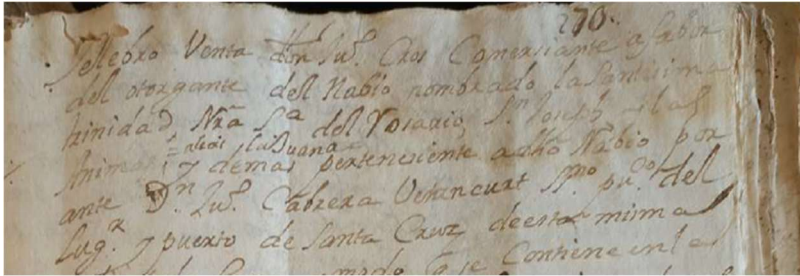 270.
Selebro Venta Dn. Juº. Cros Comersiante a fabor
del otorgante del Nabio nombrado la Santisima
trinidad Nrâ Sª del Rosario, Sn. Joseph y las
Animas = alias la Juana =
y demas pertenesiente a dhô Nabio por
ante Dn Juº. Cabrera Vetancurt SSmo puco del
Lugr. y puerto de Santa Cruz, de esta misma
se Contiene en la